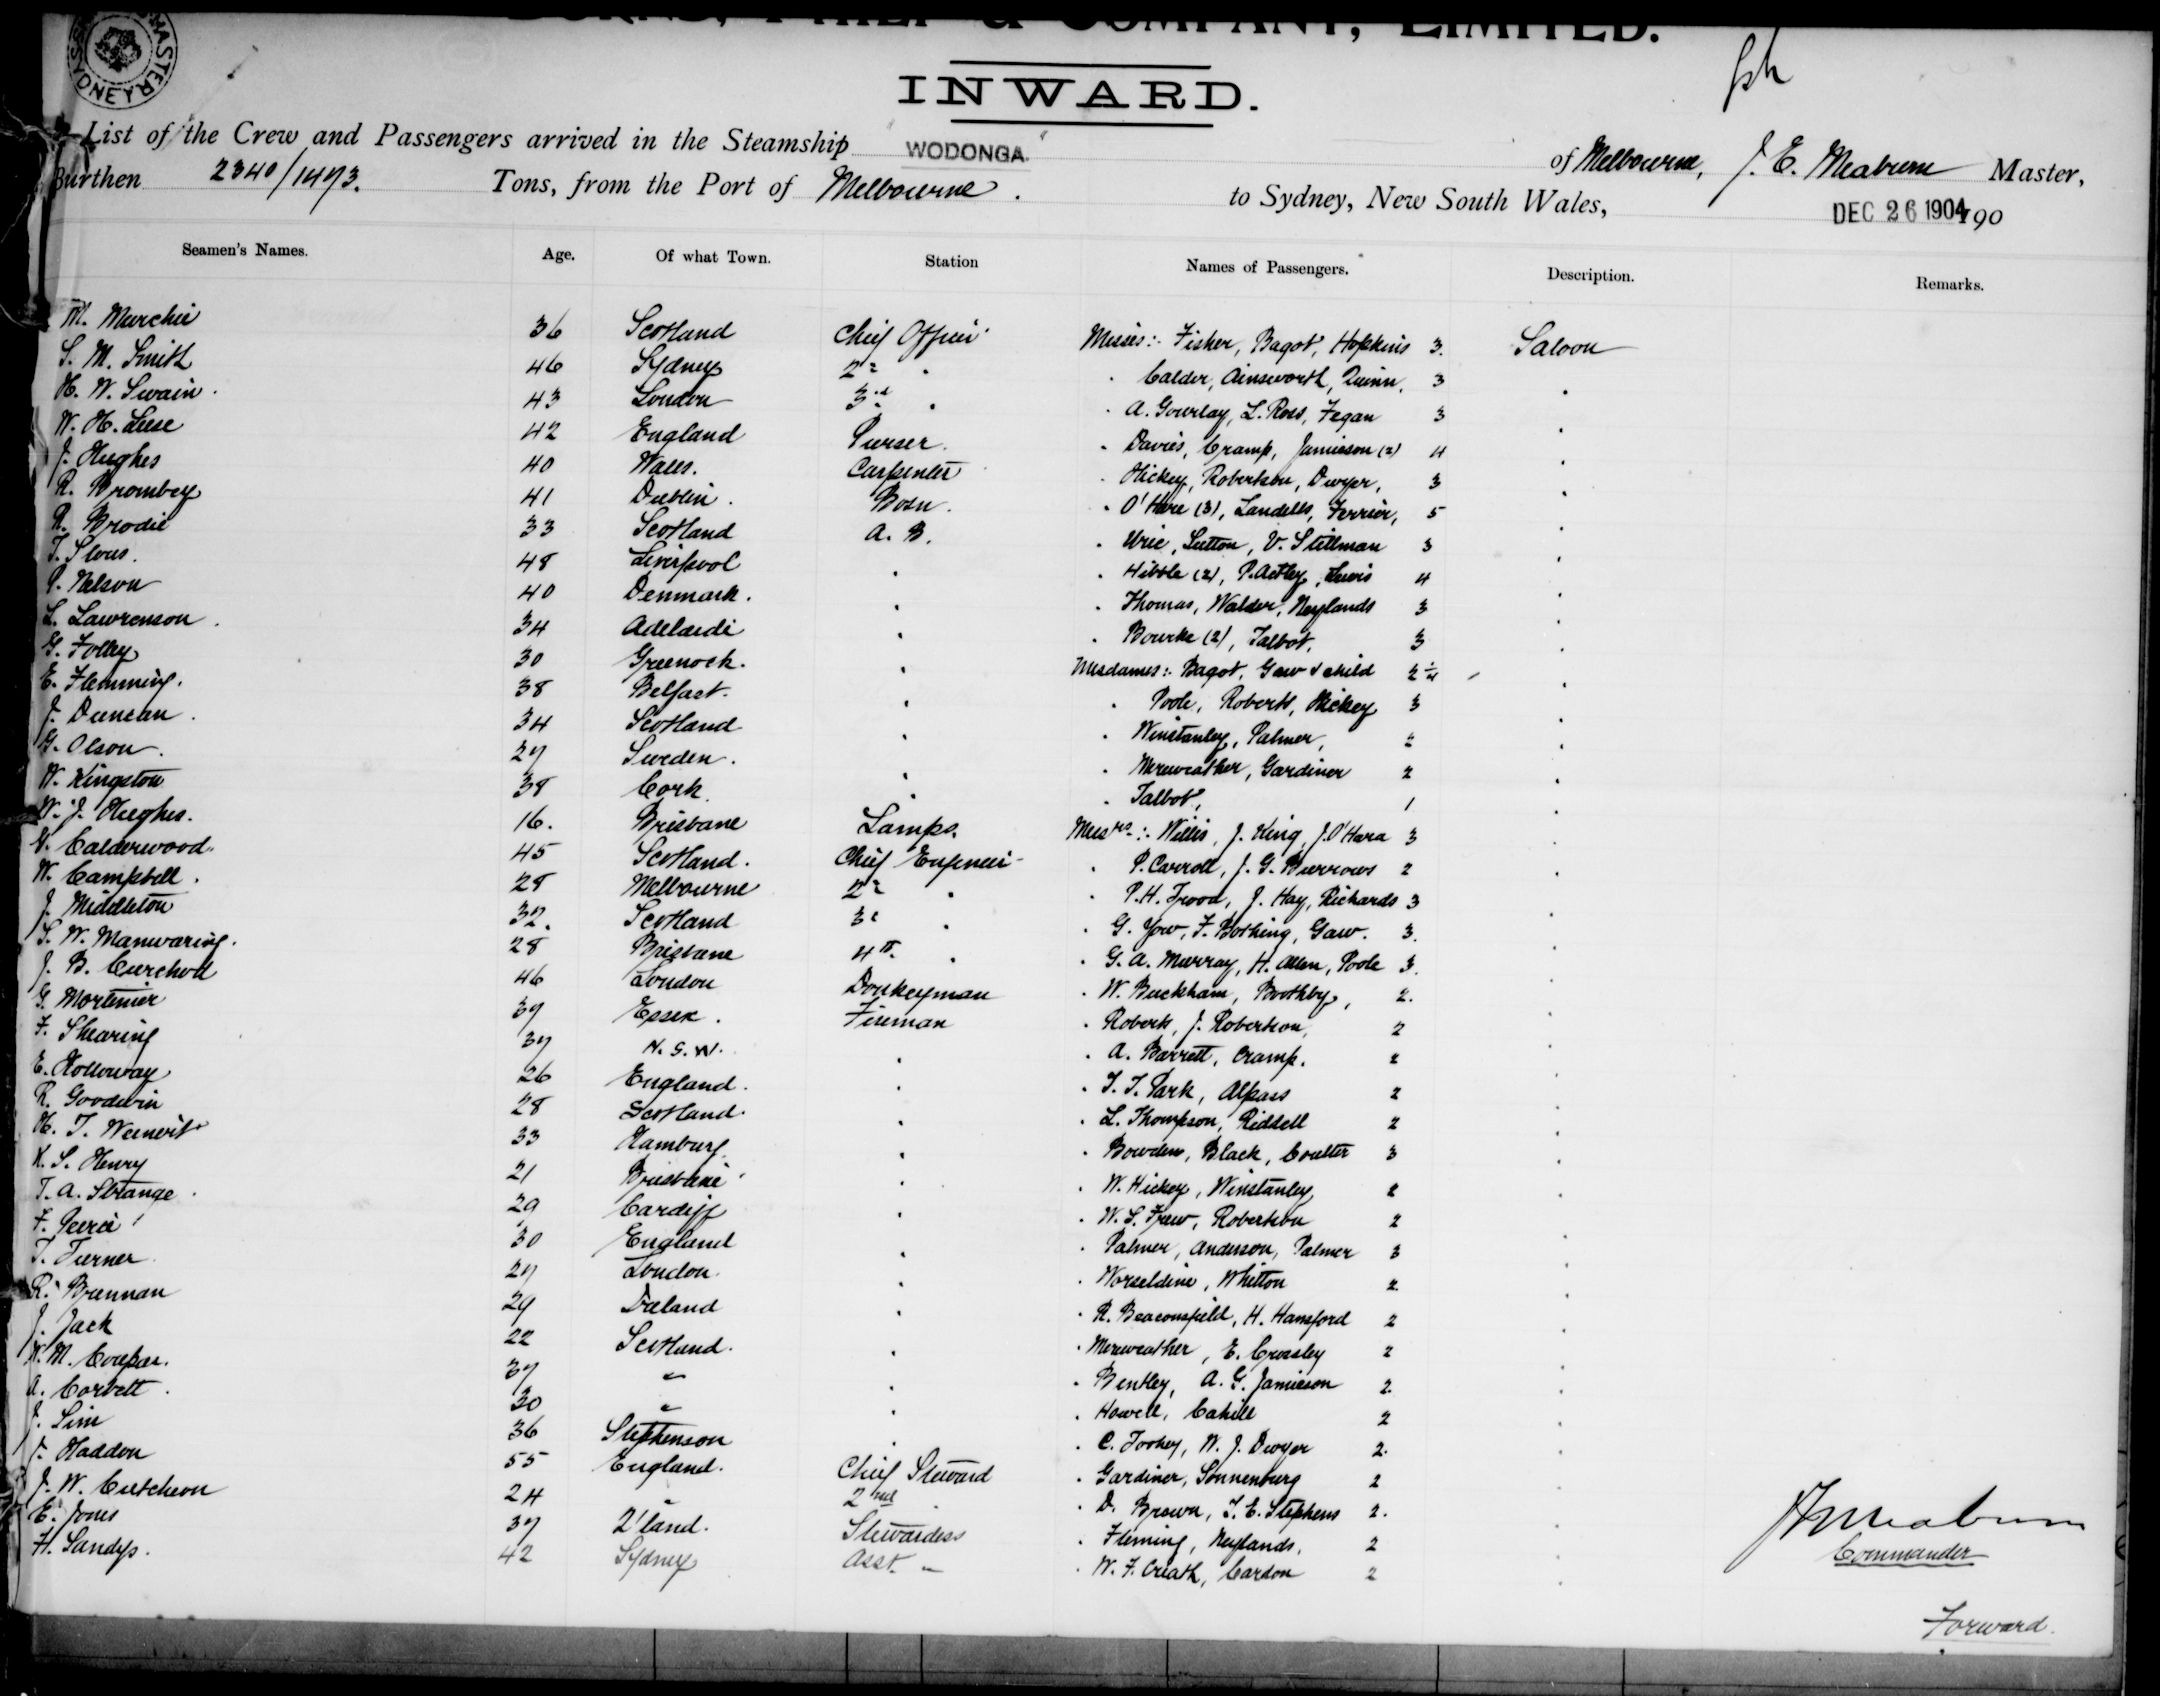 BURNS, PHILP & COMPANY, LIMITED.
MASTER SYDNEY
INWARD.
List of the Crew and Passengers arrived in the Steamship "WODONGA" of Melbourne, J. E. Meaburn Master,
Burthen 2340/1473. Tons, from the Port of Melbourne. to Sydney, New South Wales, DEC 26 1904 190
Seamen's Names. Age. Of what Town. Station Names of Passengers. Description. Remarks.
M. Murchie 36 Scotland Chief Officer Misses:- Fisher, Bagot, Hopkins 3. Saloon
S. M. Smith 46 Sydney 2nd " " Calder, Ainsworth, Quinn, 3 "
H. W. Swain. 43 London 3rd " " A. Gourlay, L. Ross, Fegan 3 "
W. H. Luse 42 England Purser. " Davies, Cramp, Jamieson (2) 4 "
J. Hughes 40 Wales. Carpenter " Hickey, Robertson, Dwyer, 3 "
R. Brombey 41 Dublin. Bosn. " O'Hare (3), Landells, Ferrier, 5 "
R. Brodie 33 Scotland A. B. " Urie, Sutton, V. Stillman 3 "
T. Slous. 48 Liverpool " " Hibble (2), P. Astley, Lewis 4 "
P. Nelson 40 Denmark. " " Thomas, Walder, Neylands 3 "
L. Lawrenson. 34 Adelaide " " Bourke (2), Talbot, 3 "
G. Folley 30 Greenock. " Mesdames:- Bagot, Gaw & child 2 1/4 "
E. Flemming. 38 Belfast. " " Poole, Roberts, Hickey 3 "
J. Duncan. 34 Scotland " " Winstanley, Palmer, 2 "
G. Olson. 27 Sweden. " " Mereweather, Gardiner 2 "
W. Kingston 38 Cork. " " Talbot, 1 "
W. J. Hughes. 16. Brisbane Lamps. Messrs:- Willis, J. King, J. O'Hara 3 "
Calderwood. 45 Scotland. Chief Engineer " P. Carroll, J. G. Burrows 2 "
W. Campbell. 28 Melbourne 2nd " " P. H. Trood, J. Hay, Richards 3
J. Middleton 32. Scotland 3rd " " G. Yow, F. Bothing, Gaw. 3. "
S. W. Manwaring. 28 Brisbane 4th " " G. A. Murray, H. Allen, Poole 3. "
J. B. Curchod 46 London Donkeyman " W. Buckham, Boothby, 2. "
G. Mortimer 37 Essex. Fireman " Roberts, J. Robertson, 2 "
F. Shearing 37 N.S.W. " " A. Barrett, Cramp. 2 "
E. Holloway 26 England. " " T. T. Park, Alpass 2 "
R. Goodwin 28 Scotland. " " L. Thompson, Riddell 2 "
H. T. 33 Hamburg " " Bowden, Black, Coulter 3 "
S. Henry 21 Brisbane " " W. Hickey, Winstanley 2 "
T. A. Strange. 29 Cardiff " " W. S. Frew, Robertson 2 "
F. Peerce 30 England " " Palmer, Anderson, Palmer 3 "
T. Turner 27 London. " " Worseldine, Whitton 2. "
R. Brennan 29 Ireland " " R. Beaconsfield, H. Hansford 2 "
J. Jack 22 Scotland. " " Mereweather, E. Crossley 2 "
M. Coupar. 37 " " " Bentley, A. G. Jamieson 2. "
A. Corbett. 30 " " " Howell, Cahill 2 "
J. Sim 36 Stephenson " " C. Toohey, W. J. Dwyer 2. "
J. Haddon 55 England. Chief Steward " Gardiner, Sonnenburg 2 "
J. W. Cutcheon 24 " 2nd " " D. Brown, J. E. Stephens 2. "
E. Jones 37 Q'land. Stewardess " Fleming, Neylands, 2 "
H. Sandys. 42 Sydney Asst. " " W. F. Creath, Cardon 2 "
J E Meaburn
Commander
Forward.